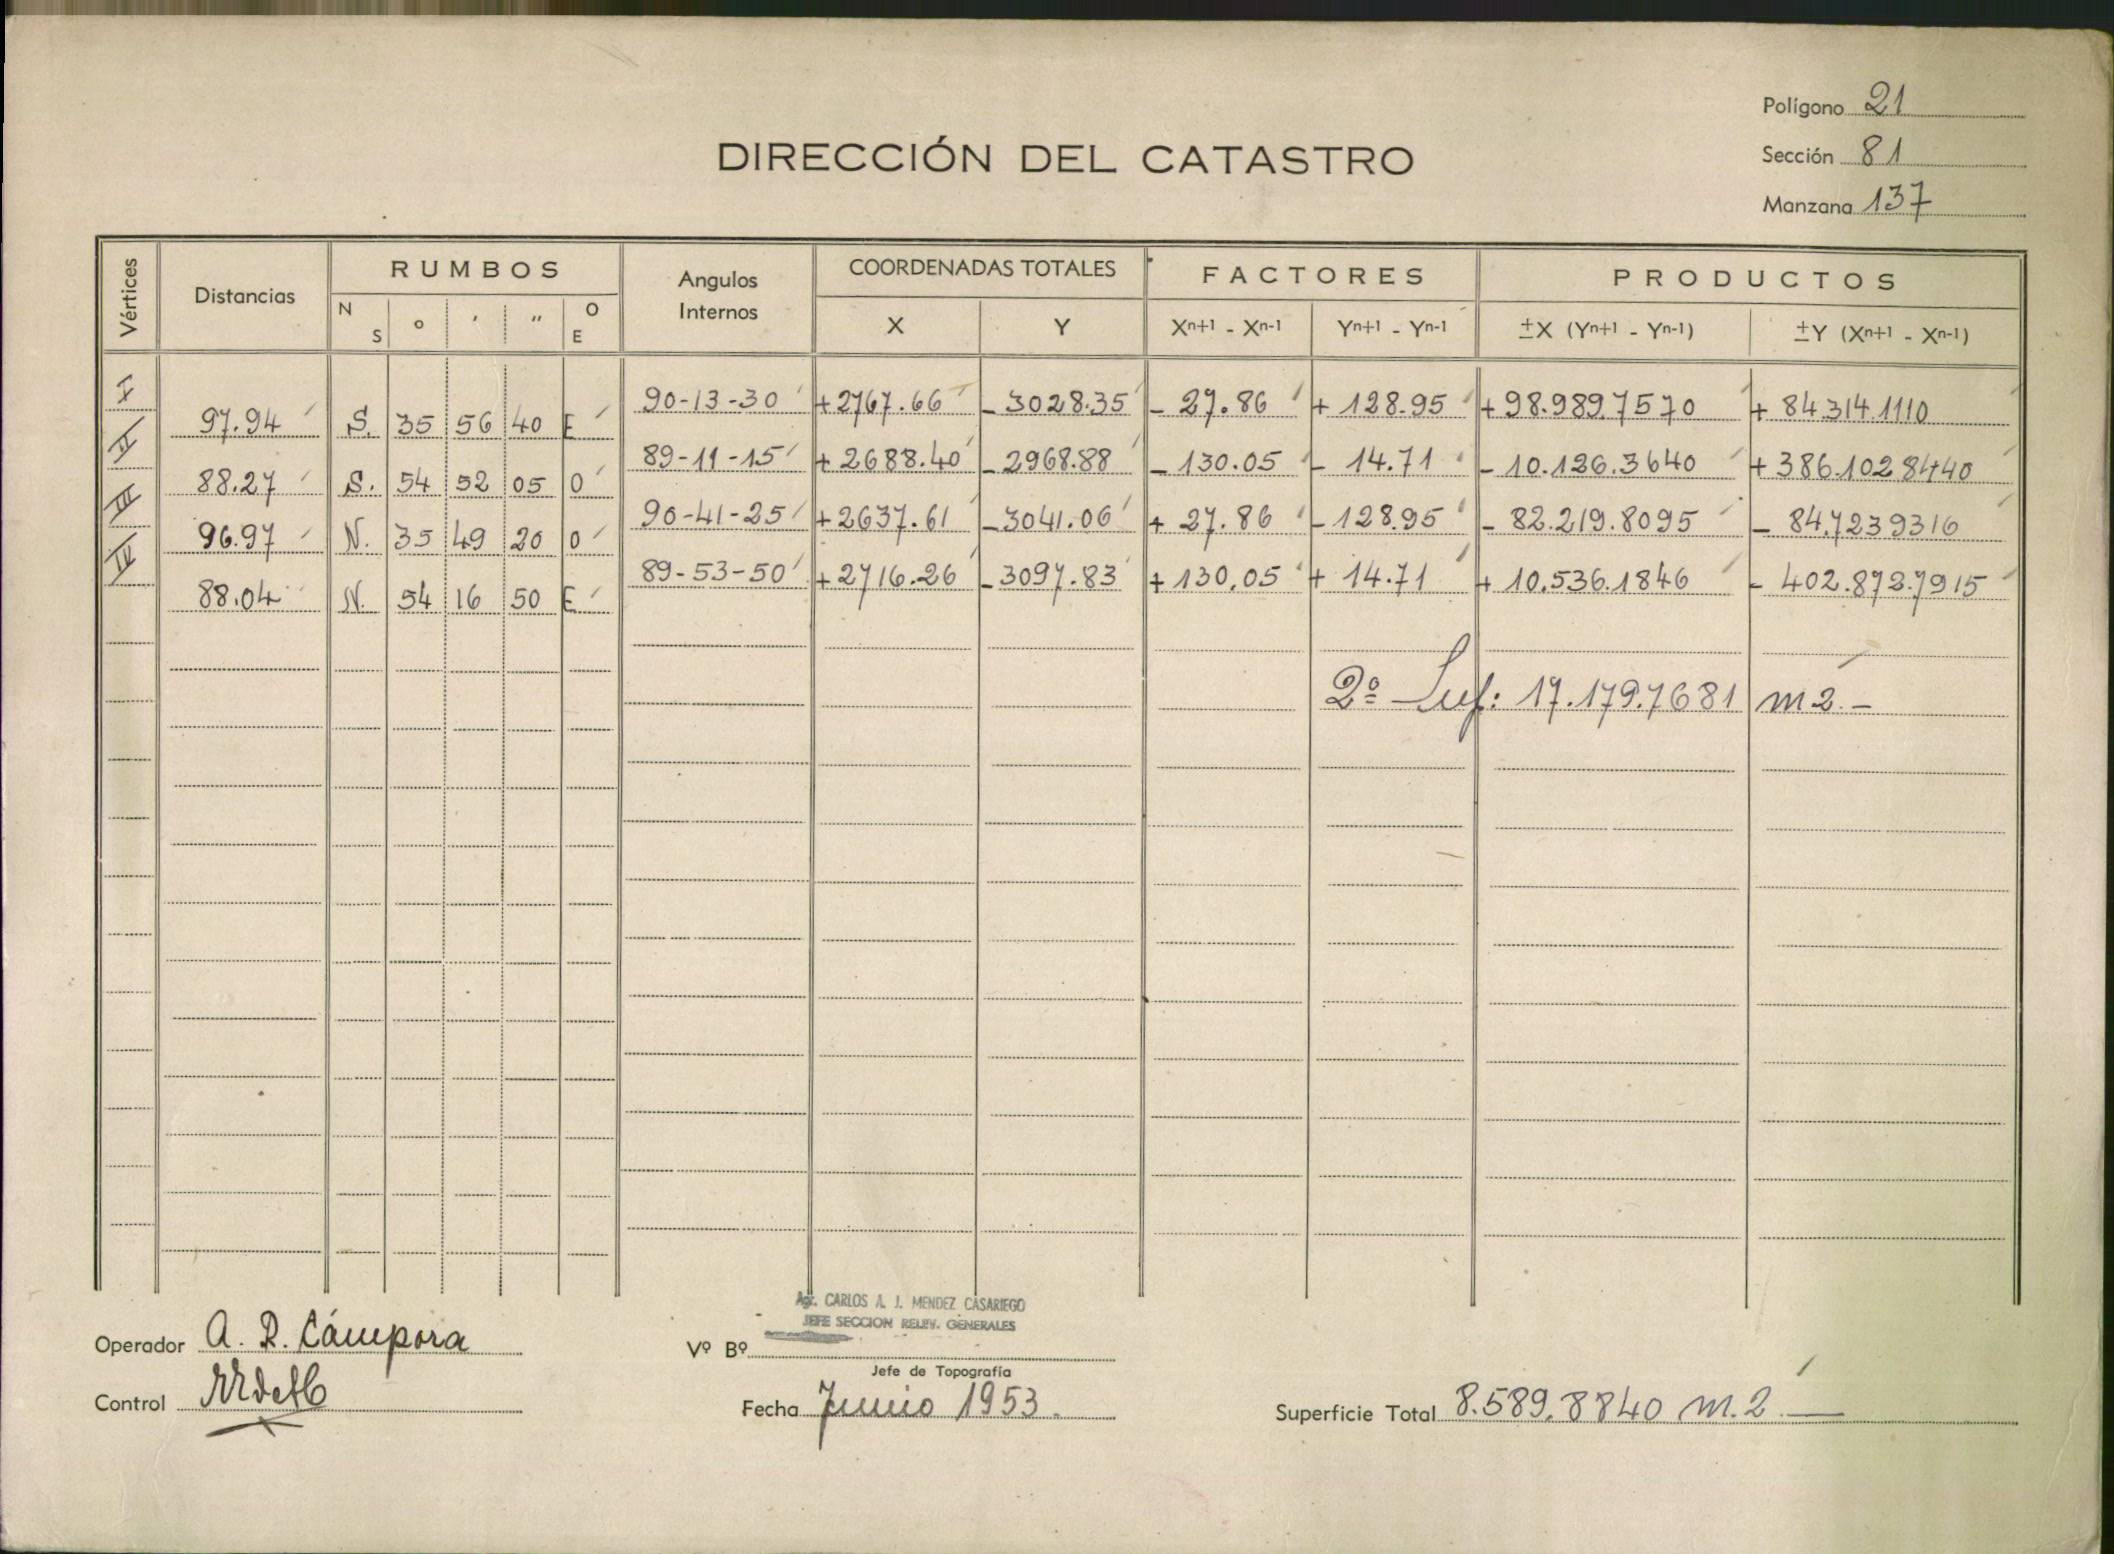 Polígono 21
Sección 81
Manzana 137
DIRECCIÓN DEL CATASTRO
Vértices Distancias RUMBOS Angulos Internos COORDENADAS TOTALES FACTORES PRODUCTOS
N S ° ' " O E X Y Xn+1 - Xn-1 Yn+1 - Yn-1 ±X (Yn+1 - Yn-1) ±Y (Xn+1 - Xn-1)
I 90-13-30 +2767.66 -3028.35 -27.86 +128.95 +98.989.7570 +84.314.1110
97.94 S. 35 56 40 E
II 89-11-15 +2688.40 -2968.88 -130.05 -14.71 -10.126.3640 +386.102.8440
88.27 S. 54 52 05 O
III 90-41-25 +2637.61 -3041.06 +27.86 -128.95 -82.219.8095 -84.723.9316
96.97 N. 35 49 20 O
IV 89-53-50 +2716.26 -3097.83 +130.05 +14.71 +10.536.1846 -402.872.7915
88.04 N. 54 16 50 E
2º Suf: 17.179.7681 m2.-
Agr. CARLOS A. J. MENDEZ CASARIEGO
JEFE SECCION RELEV. GENERALES
Operador A. R. Cámpora
Vº Bº
Jefe de Topografía
Control
Fecha Junio 1953.
Superficie Total 8.589.8840 m.2.—